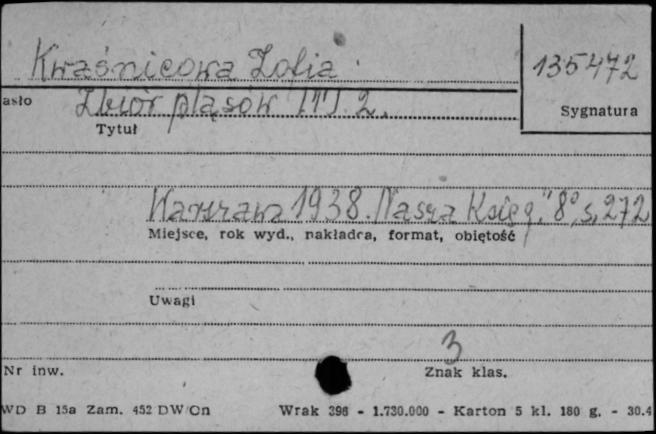 Kwaśnicowa Zofia.
135472
asło
Zbiór pląsów [T] 2.
Sygnatura
Tytuł
Warszawa 1938. "Nasza Księg." 8°, s, 272
Miejsce, rok wyd., nakładca, format, objętość
Uwagi
3
Nr inw.
Znak klas.
WD B 15a Zam. 452 DW/Cn
Wrak 396 - 1.730.000 - Karton 5 kl. 180 g. - 30.4